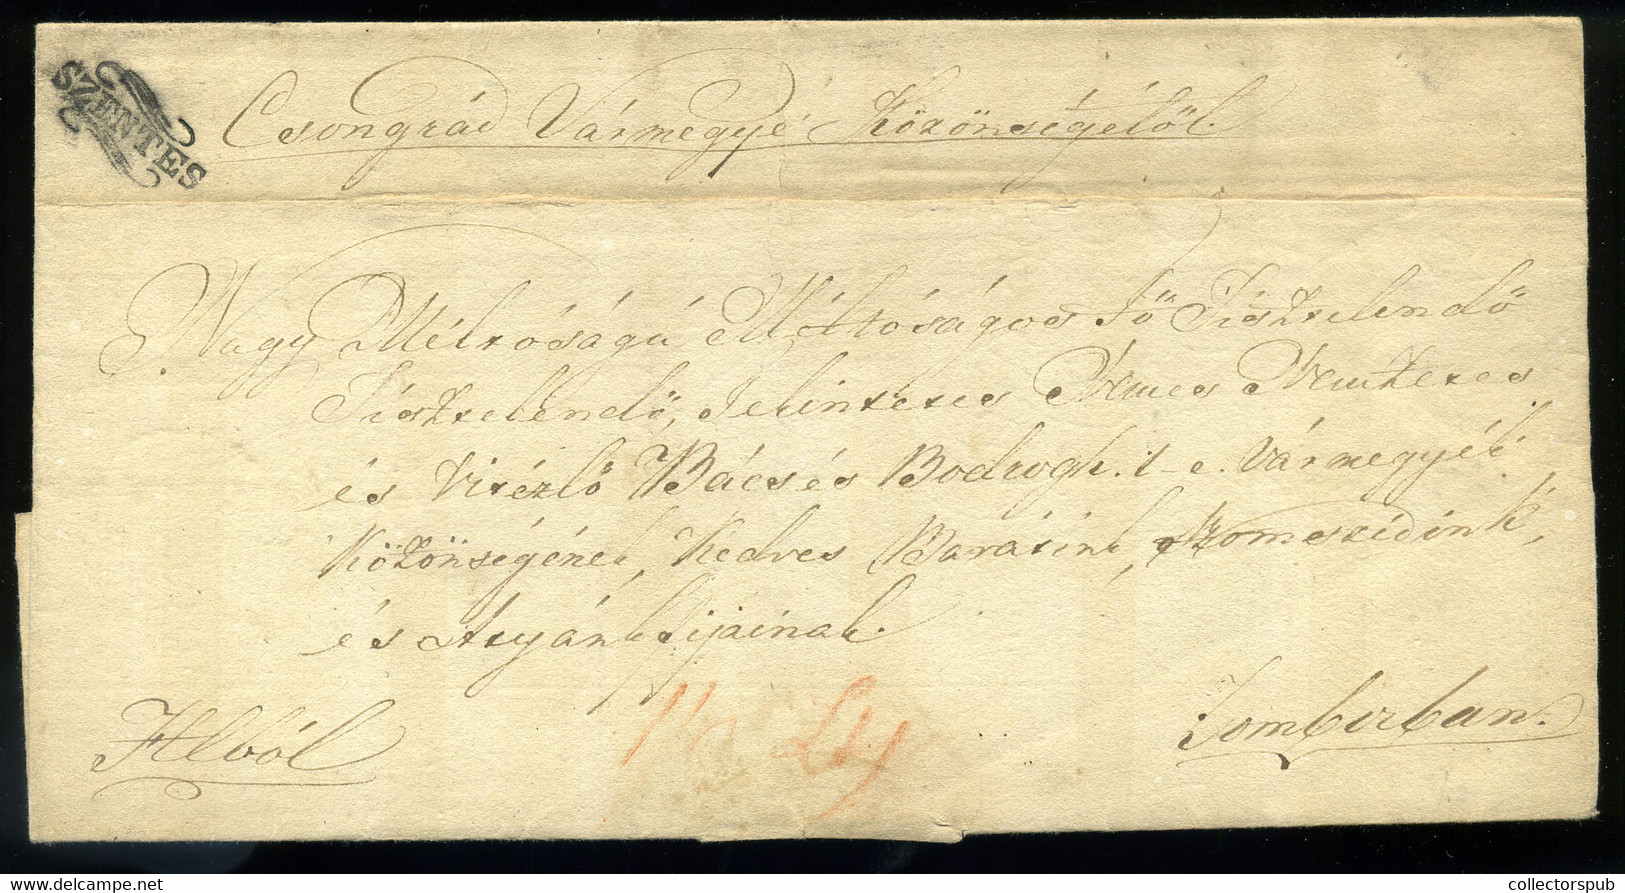 SZENTES
Csongrád Vármegye Közönségétől.
Nagy Méltóságú Méltóságos Fő Tisztelendő
Tisztelendő, Tekintetes Nemes Nemzetes
és Vitézlő Bács és Bodrogh t. e. Vármegyék
Közönségének, Kedves Barátink, Szomszédink,
és Atyánkfijainak.
Hlból
Zomborban.
collectorspub